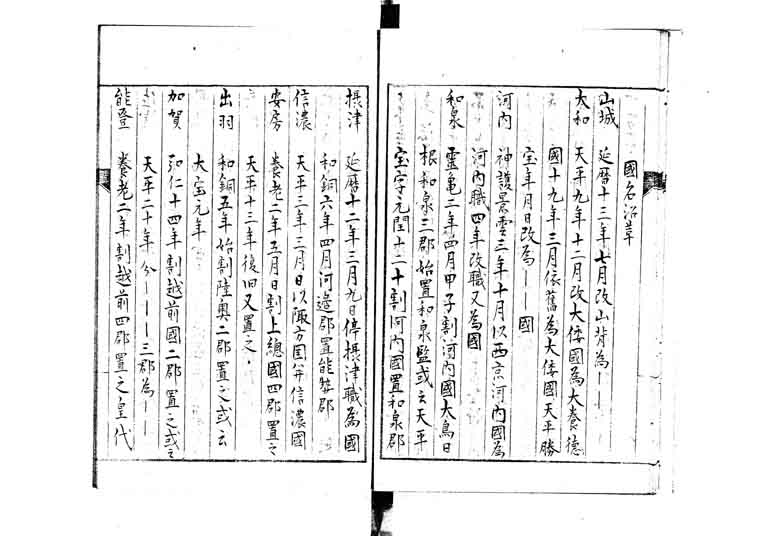 國名沿革
山城 延曆十三年七月改山背為——
大和 天平九年十二月改大倭國為大養德
國十九年三月依舊為大倭國天平勝
宝年月日改為——國
河内 神護景雲三年十月以西京河内國為
河内職四年改職又為國
和泉 靈亀二年四月甲子割河内國大鳥日
根和泉三郡始置和泉監或云天平
宝字元閏十二十割河内國置和泉郡
摂津 延曆十二年三月九日停摂津職為國
和銅六年四月河邉郡置能勢郡
信濃 天平三年三月日以諏方国并信濃國
安房 養老二年五月日割上總國四郡置之
天平十三年復旧又置之
出羽 和銅五年始割陸奥二郡置之或云
大宝元年
加賀 弘仁十四年割越前國二郡置之或云
天平二十年分———三郡為——
能登 養老二年割越前四郡置之皇代